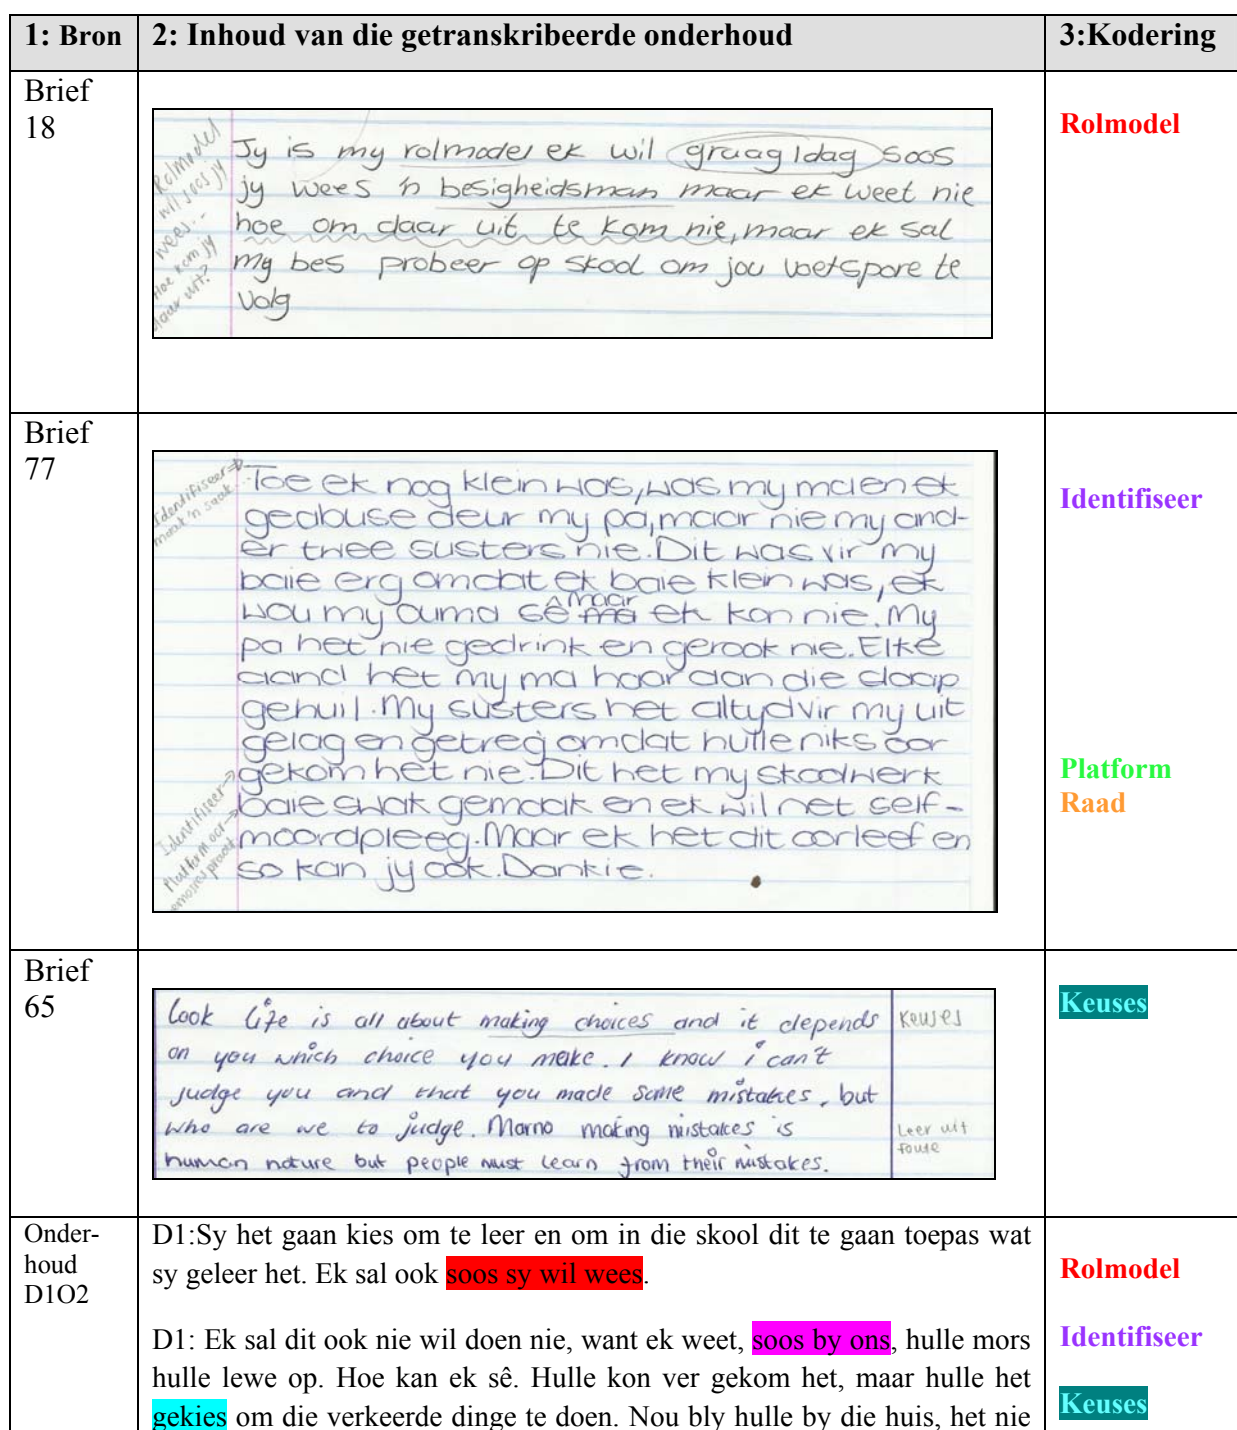 1: Bron 2: Inhoud van die getranskribeerde onderhoud 3:Kodering
Brief
18
Rolmodel
Rolmodel
wil soos jy
wees...
Hoe kom jy
daar uit?
Jy is my rolmodel ek wil graag 1dag soos
jy wees 'n besigheidsman maar ek weet nie
hoe om daar uit te kom nie, maar ek sal
my bes probeer op skool om jou voetspore te
volg
Brief
77
Identifiseer
Identifiseer
maak 'n saak
Toe ek nog klein was, was my ma en ek
geabuse deur my pa, maar nie my and-
er twee susters nie. Dit was vir my
baie erg omdat ek baie klein was, ek
wou my ouma sê maar ek kon nie. My
pa het nie gedrink en gerook nie. Elke
aand het my ma haar aan die slaap
gehuil. My susters het altyd vir my uit
gelag en getreg omdat hulle niks oor
gekom het nie. Dit het my skoolwerk
baie swak gemaak en ek wil net self-
moordpleeg. Maar ek het dit oorleef en
so kan jy ook. Dankie.
Identifiseer
Platform oor
emosies praat
Platform
Raad
Brief
65
Keuses
look life is all about making choices and it depends
on you which choice you make. I know i can't
judge you and that you made some mistakes, but
who are we to judge. Marno making mistakes is
human nature but people must learn from their mistakes.
Keuses
Leer uit
foute
Onder-
houd
D1O2
D1:Sy het gaan kies om te leer en om in die skool dit te gaan toepas wat
sy geleer het. Ek sal ook soos sy wil wees.
Rolmodel
D1: Ek sal dit ook nie wil doen nie, want ek weet, soos by ons, hulle mors
hulle lewe op. Hoe kan ek sê. Hulle kon ver gekom het, maar hulle het
gekies om die verkeerde dinge te doen. Nou bly hulle by die huis, het nie
Identifiseer
Keuses